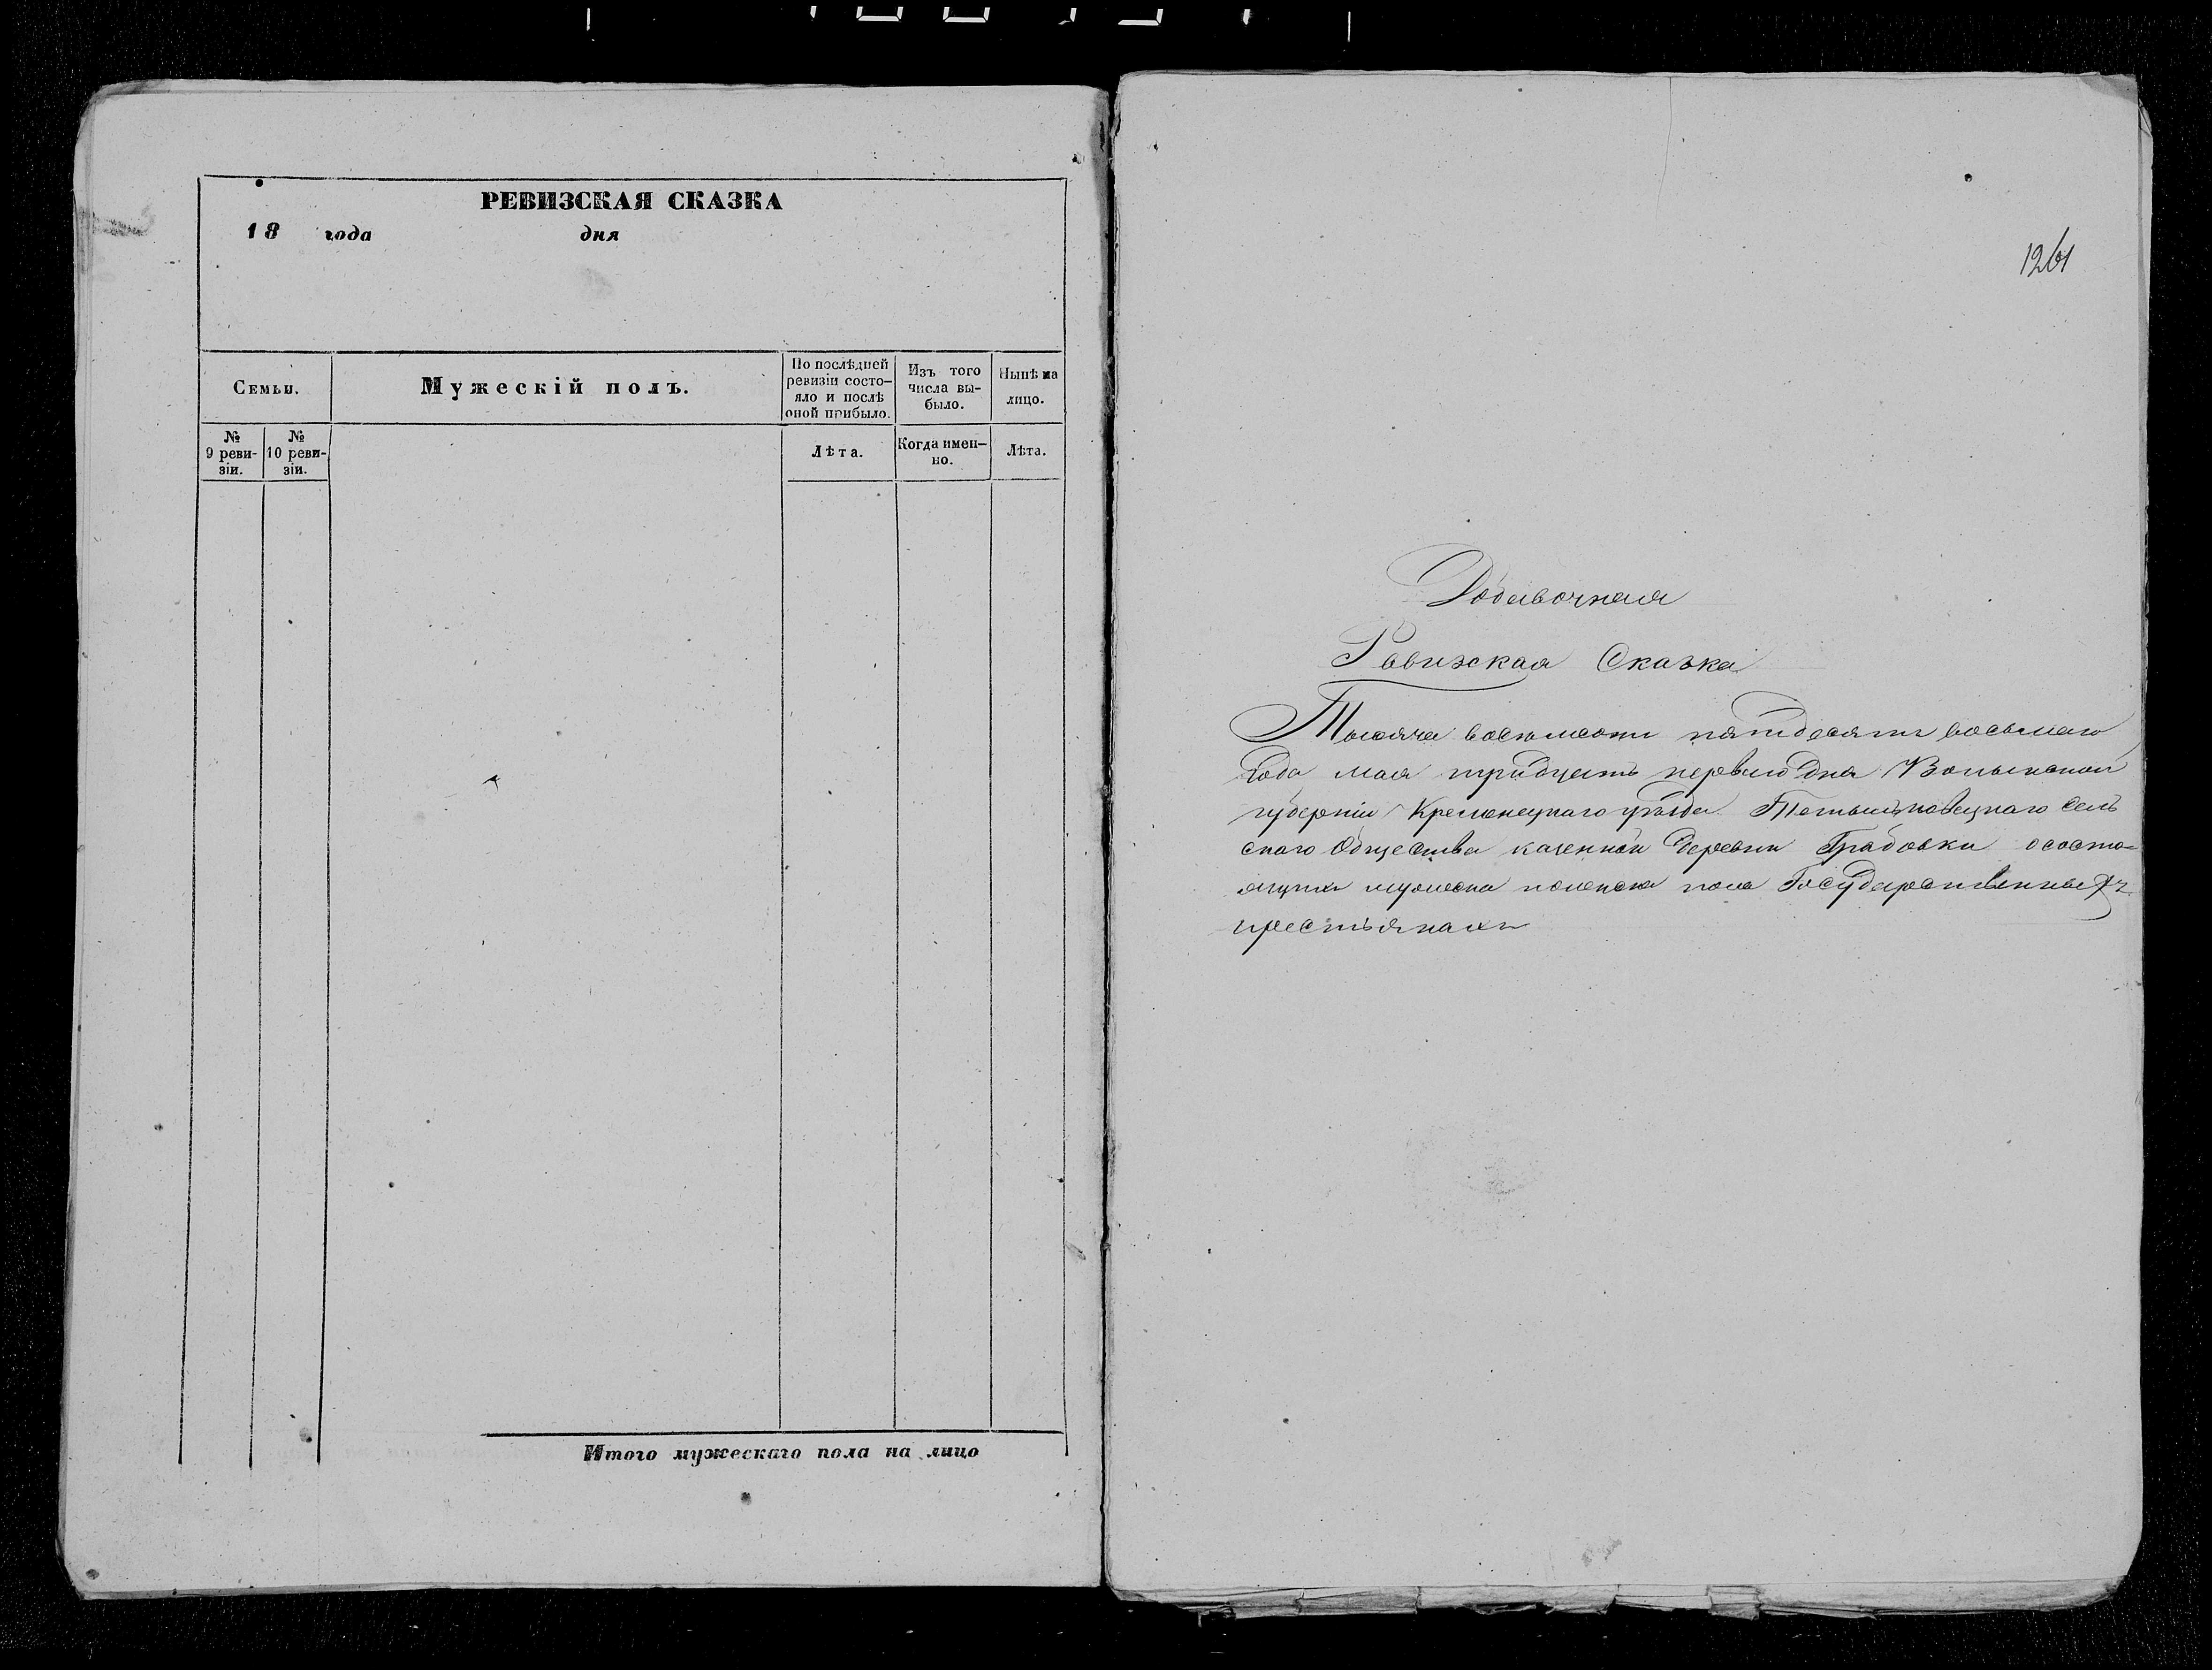 РЕВИЗСКАЯ СКАЗКА
18 года дня
Семьи.
Мужескій полъ.
По послѣдней
ревизіи состо-
яло и послѣ
оной прибыло.
Изъ того
числа вы-
было.
Нынѣ на
лицо.
№
9 реви-
зіи.
№
10 реви-
зіи.
Лѣта.
Когда имен-
но.
Лѣта.
Итого мужескаго пола на лицо
1261
Добавочная
Ревизская Сказка
Тысяча восемьсотъ пятдесятъ восьмаго
Года мая тридцать перваго дня Волынской
губерніи Кременецкаго уѣзда Сель
скаго Общества казенной Деревни Грабовки ососто=
ящихъ мужеска женска пола Государственныхъ
крестьянахъ